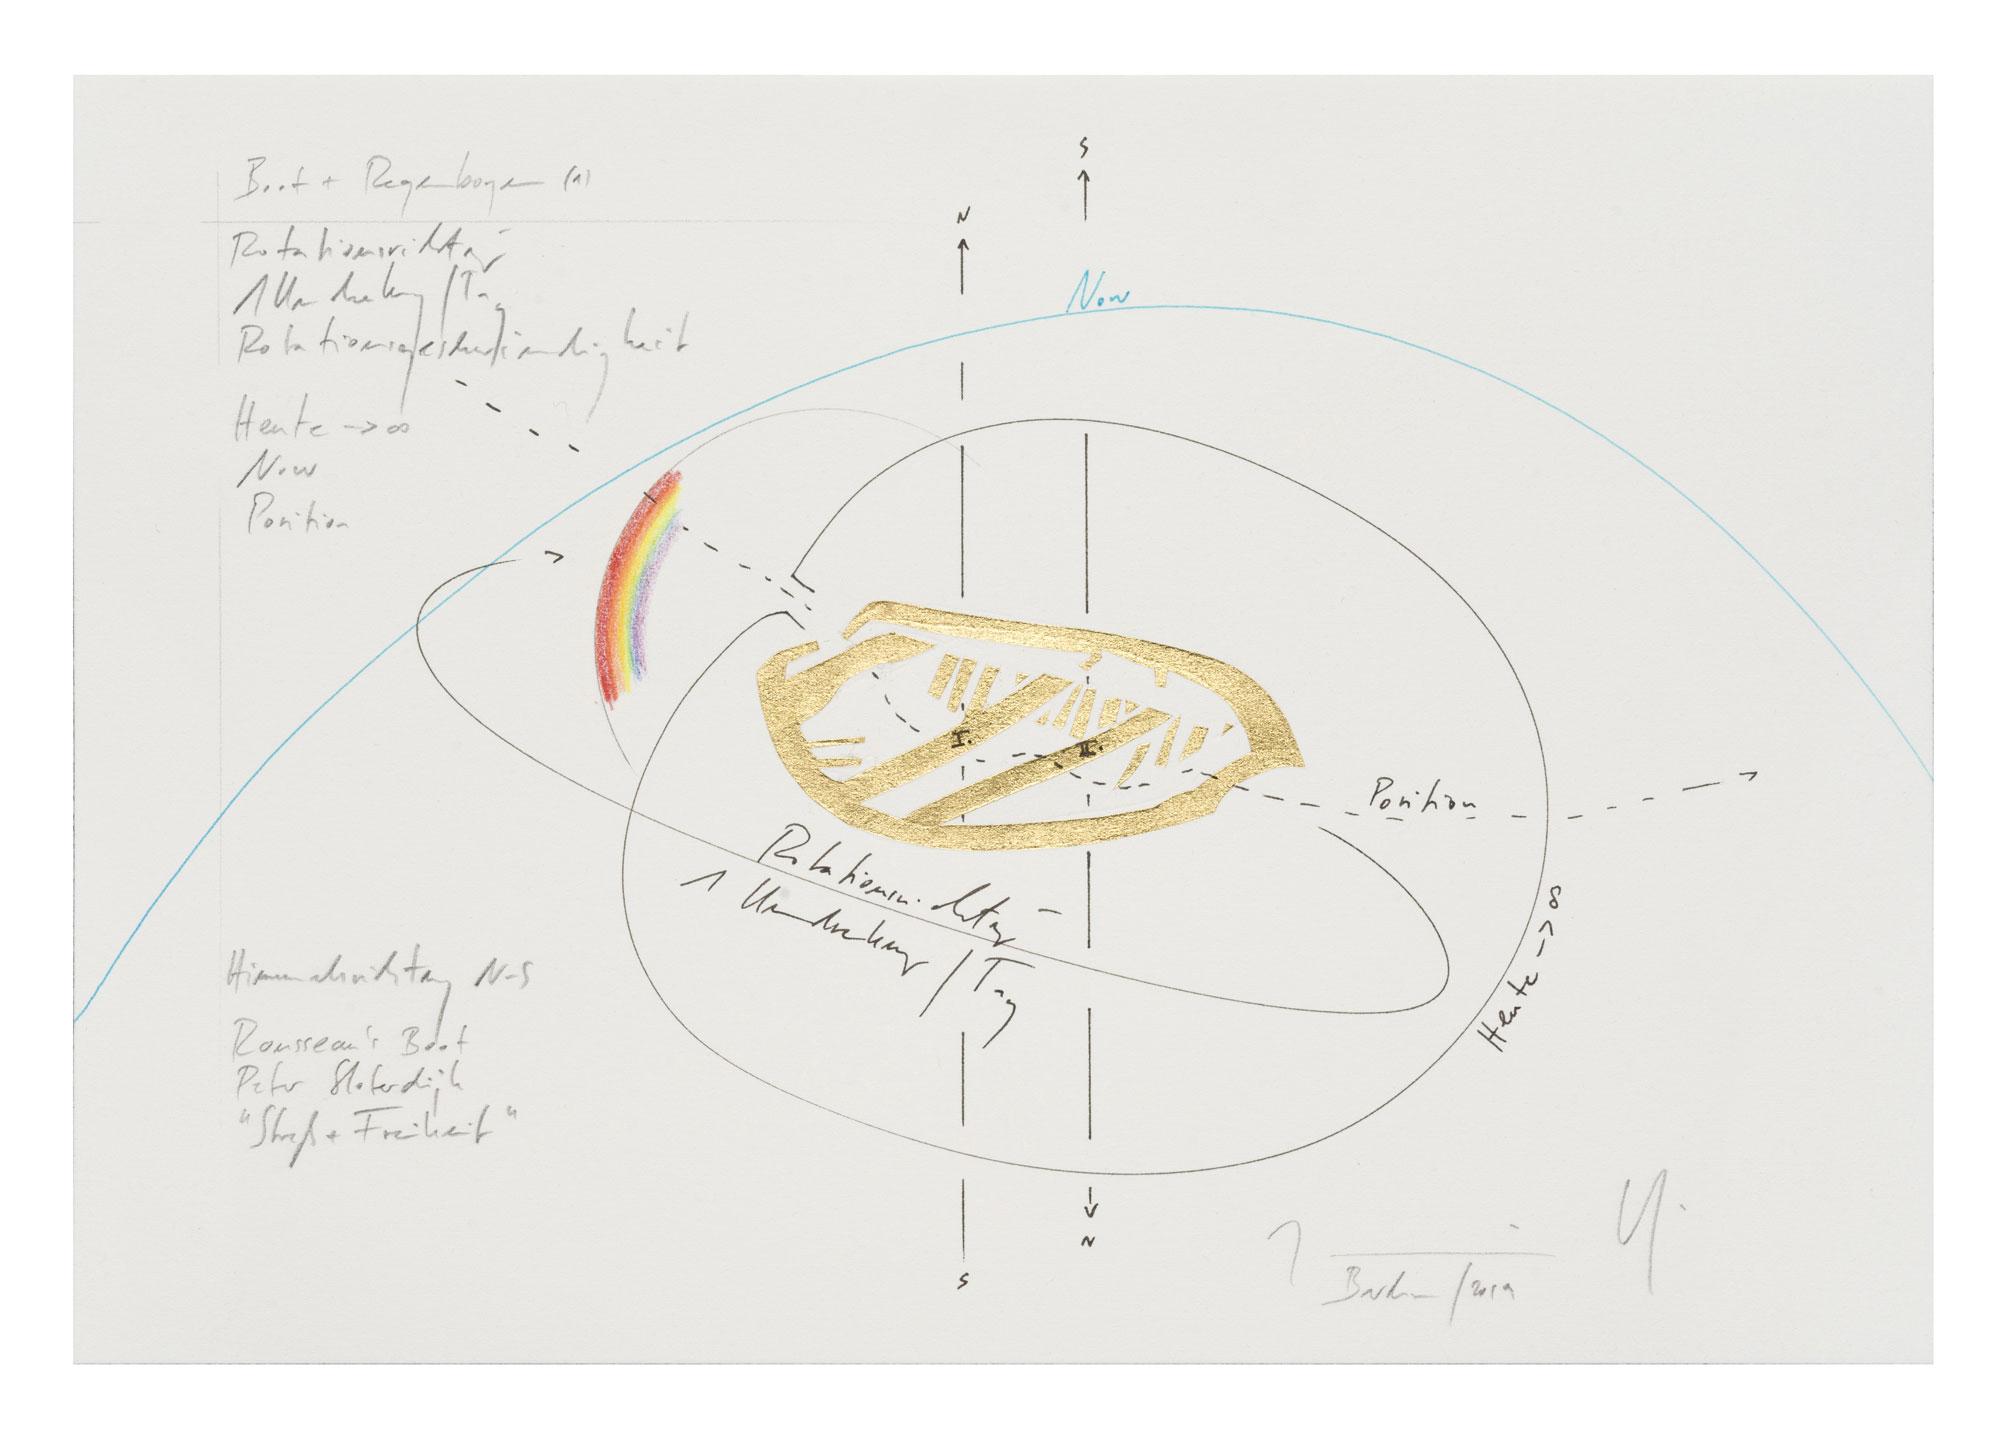 Boot + Regenbogen (1)
Rotationsrichtung
1 Umdrehung/Tag
Rotationsgeschwindigkeit
Heute → ∞
Now
Position
S
N
Now
I.
II.
Position
Rotationsrichtung
1 Umdrehung/Tag
Heute → ∞
Himmelsrichtung N-S
Rousseau's Boot
Peter Sloterdijk
"Streß + Freiheit"
N
S
Berlin/2019